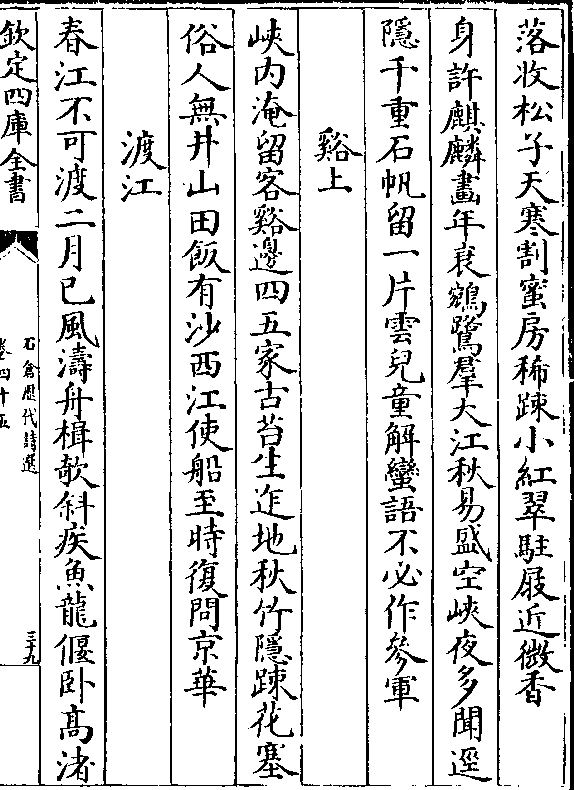 落收松子天寒割蜜房稀疎小紅翠駐屐近微香
身許麒麟畫年衰鵷鷺羣大江秋易盛空峽夜多聞逕
隱千重石帆留一片雲兒童解蠻語不必作參軍
谿上
峽內淹留客谿邊四五家古苔生迮地秋竹隱疎花塞
俗人無井山田飯有沙西江使船至時復問京華
渡江
春江不可渡二月已風濤舟楫欹斜疾魚龍偃卧高渚
欽定四庫全書
石倉歴代詩選
卷四十五
三十九